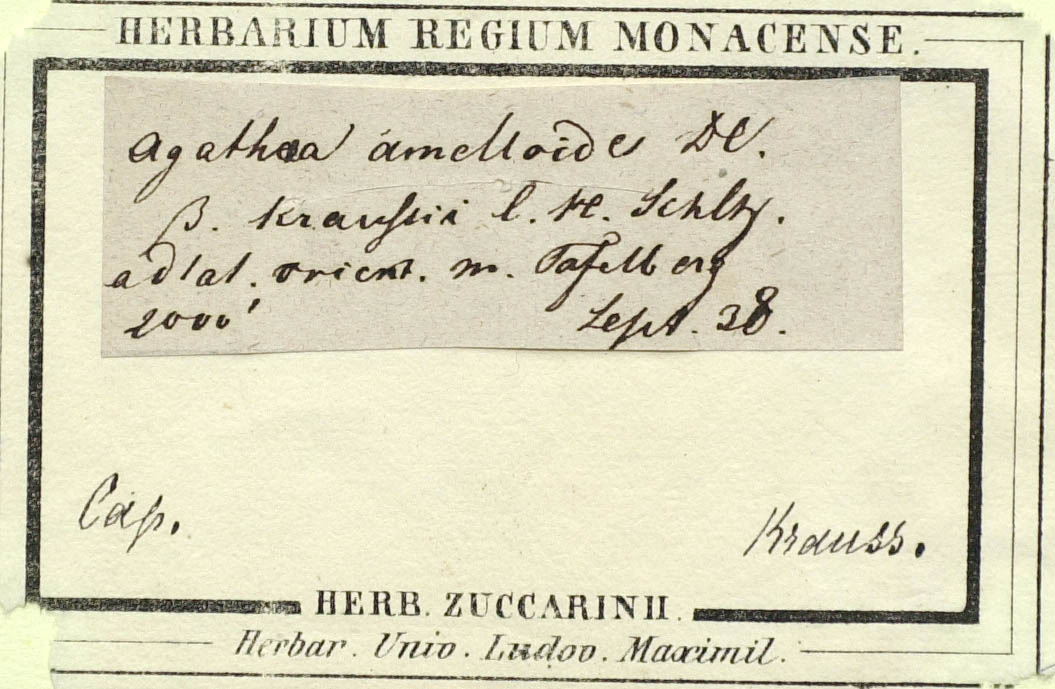 HERBARIUM REGIUM MONACENSE.
Agathaea amelloides DC.
β. Kraussii C. H. Schltz.
ad lat. orient. m. Tafelberg
2000' Sept. 38.
Cap. Krauss.
HERB. ZUCCARINII.
Herbar. Univ. Ludov. Maximil.